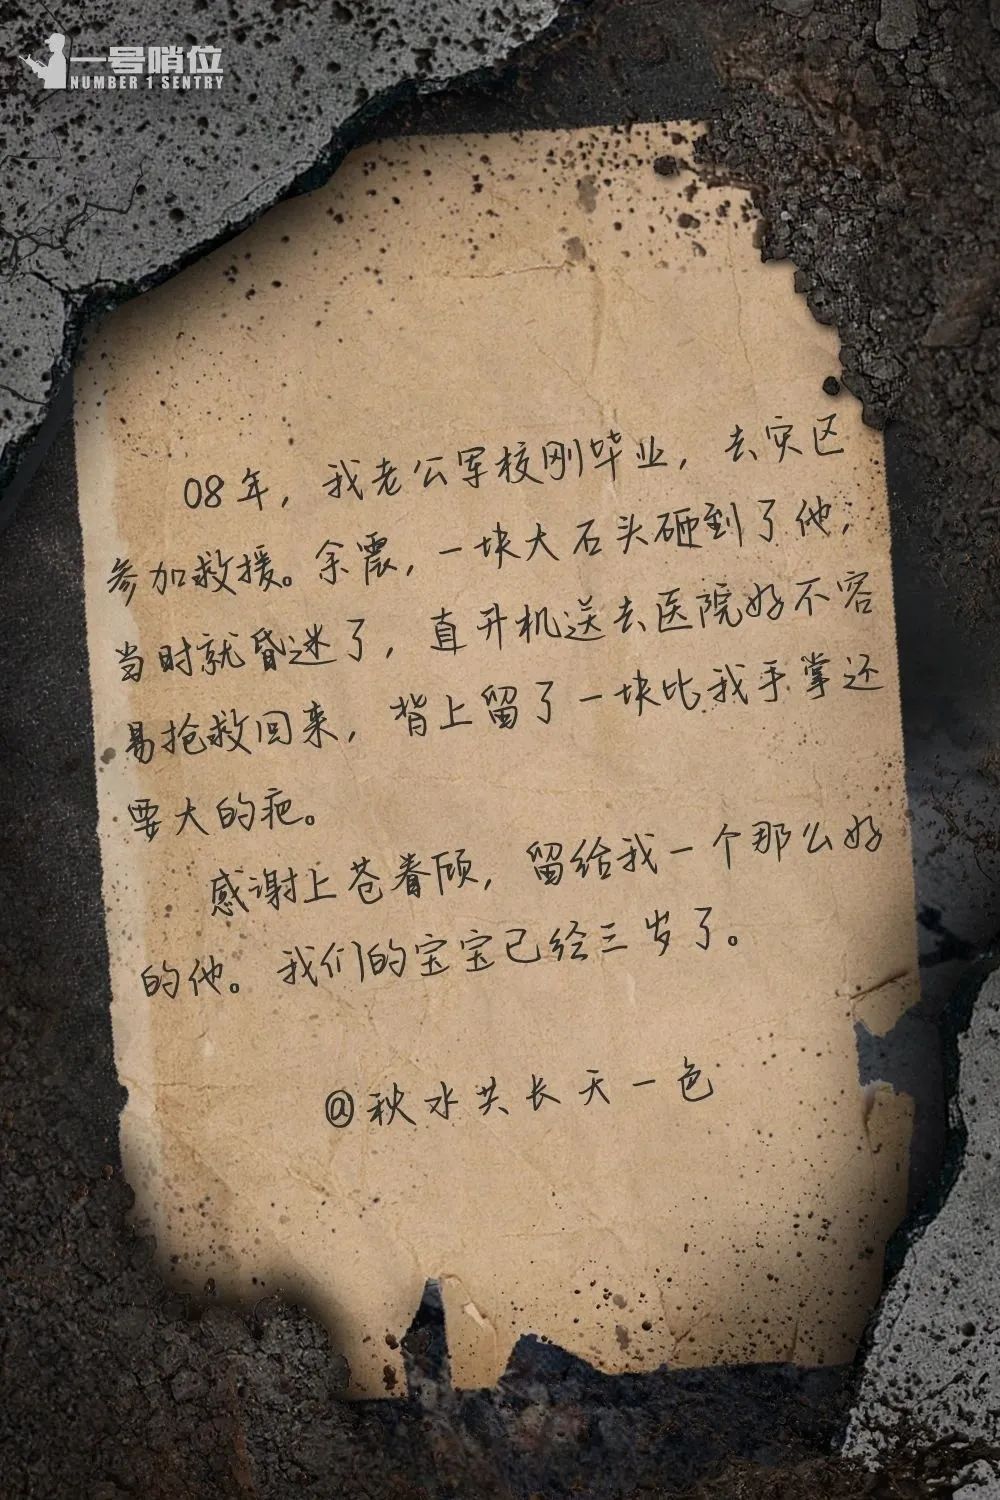 一号哨位
NUMBER 1 SENTRY
08年，我老公军校刚毕业，去灾区
参加救援。余震，一块大石头砸到了他，
当时就昏迷了，直升机送去医院好不容
易抢救回来，背上留了一块比我手掌还
要大的疤。
感谢上苍眷顾，留给我一个那么好
的他。我们的宝宝已经三岁了。
@秋水共长天一色